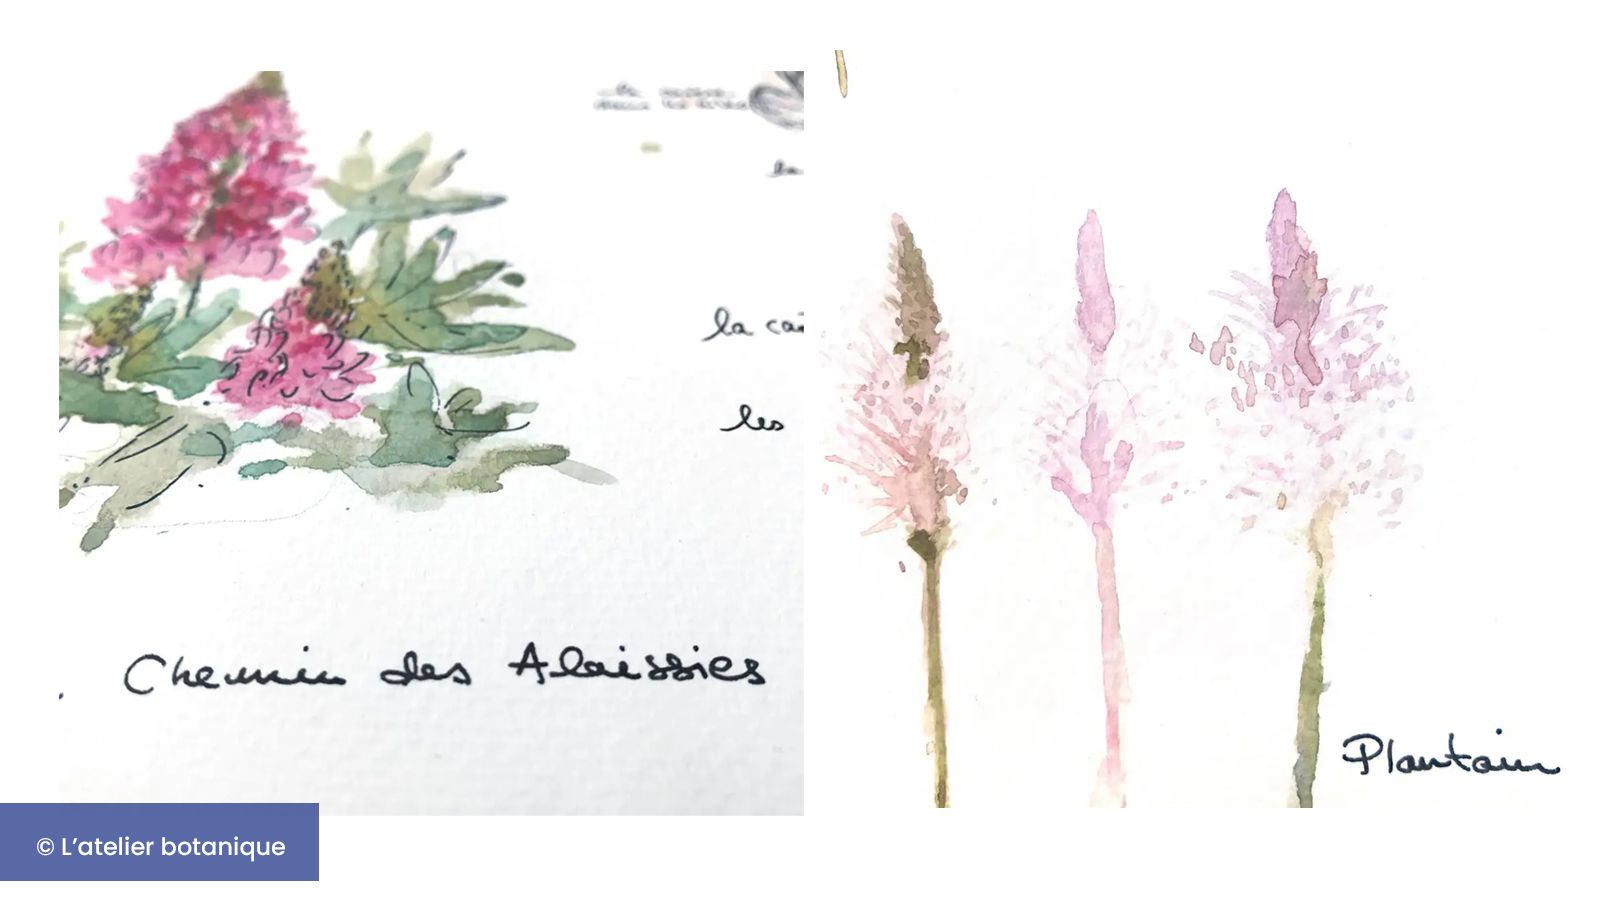 la
la
les
Chemin des Alaissies
Plantain
© L’atelier botanique